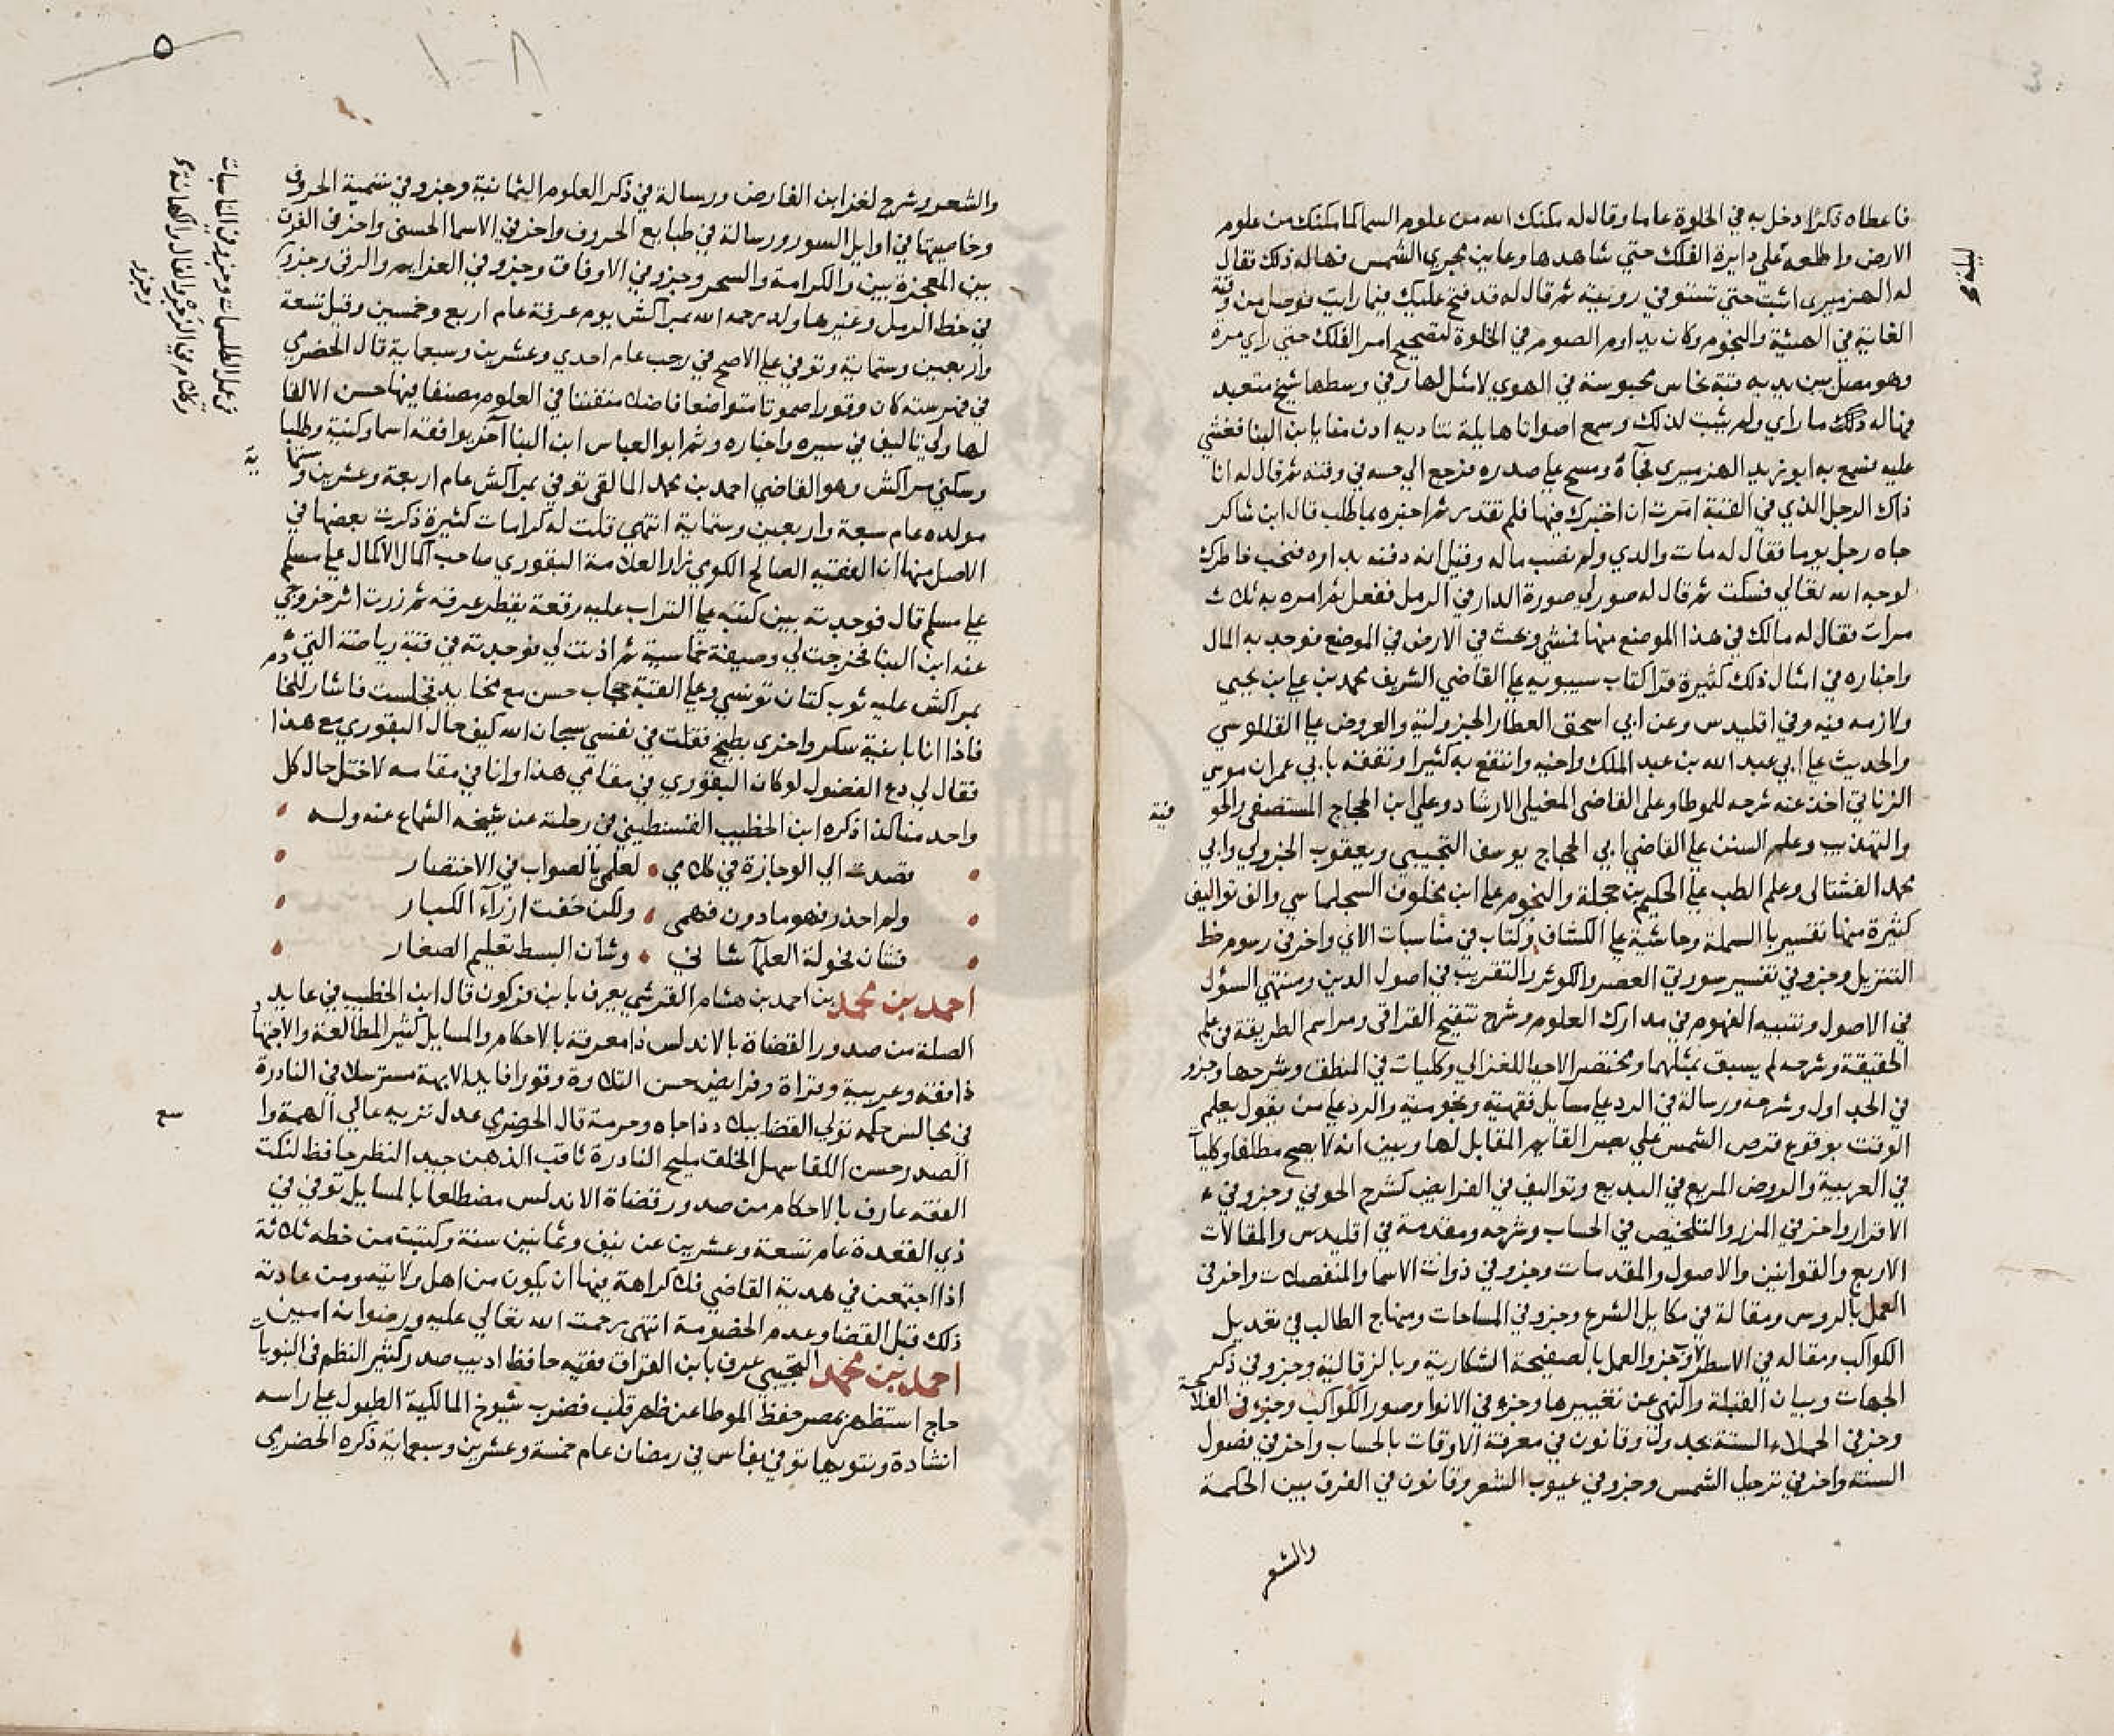 فاعطاه ذكرا دخل به في الخلوة عاما وقال له مكنك الله من علوم السما كما مكنك من علوم
الارض واطلعه علي دايرة الفلك حتي شاهدها وعاين مجري الشمس فهاله ذلك فقال
له الهزميري اثبت حتي تستوفي رويته ثم قال له قد فتح عليك فيما رايت فوصل من وقته
الغاية في الهيئة والنجوم وكان يداوم الصوم في الخلوة لتصحيح امر الفلك حتي راي مرة
وهو مصل بين يديه قبة نحاس محبوسة في الهوي لا مثل لها وفي وسطها شيخ متعبد
فهاله ذلك ما راي ولم يثبت لذلك وسمع اصواتا هايلة تناديه ادن منا يا بن البنا فغشي
عليه فسمع به ابو زيد الهزميري فجاه ومسح علي صدره فرجع الي حسه في وقته ثم قال له انا
ذاك الرجل الذي في القبة امرت ان اخبرك فيها فلم تقدر ثم اخبره بما طلب قال ابن شاكر
جاه رجل يوما فقال له مات والدي ولم نصب ماله وقيل انه دفنه بداره فنحب خاطرك
لوجه الله تعالي فسكت ثم قال له صور لي صورة الدار في الرمل ففعل ثم امره به ثلاث
مرات فقال له مالك في هذا الموضع منها فمشي وبحث في الارض في الموضع فوجد به المال
واخباره في امثال ذلك كثيرة قرا كتاب سيبويه علي القاضي الشريف محمد بن علي بن يحيي
ولازمه فيه وفي اقليدس وعن ابي اسحق العطار الجزولية والعروض علي القللوسي
والحديث علي ابي عبد الله بن عبد الملك واخيه وانتفع به كثيرا وتفقه بابي عمران موسي
الزناتي اخذ عنه شرحه للموطا وعلي القاضي المغيلي الارشاد وعلي ابن الحجاج المستصفي والحو
والتهذيب وعلم السنن علي القاضي ابي الحجاج يوسف التجيبي ويعقوب الجزولي وابي
محمد الفشتالي وعلم الطب علي الحكيم بن حجلة والنجوم علي ابن مخلون السجلماسي والف تواليف
كثيرة منها تفسير با البسملة وحاشية علي الكشاف وكتاب في مناسبات الاي واخر في رسوم خط
التنزيل وجزو في تفسير سورتي العصر والكوثر والتقريب في اصول الدين ومنتهي السؤل
في الاصول وتنبيه الفهوم في مدارك العلوم وشرح تنقيح القرافي ومراسم الطريقة في علم
الحقيقة وشرحه لم يسبق بمثلهما ومختصر الاحيا للغزالي وكليات في المنطق وشرحها وجزو
في الجداول وشرحه ورسالة في الرد علي مسايل فقهية ونجومية والرد علي من يقول بعلم
الوقت بوقوع قرص الشمس علي بصر القايم المقابل لها وبين انه لا يصح مطلقا وكليات
في العربية والروض المريع في البديع وتواليف في الفرايض كشرح الحوفي وجزو في
الاقرار واخر في المدبر والتلخيص في الحساب وشرحه ومقدمة في اقليدس والمقالات
الاربع والقوانين والاصول والمقدمات وجزو في ذوات الاسما والمنفصلات واخر في
العمل بالروس ومقالة في مكاييل الشرع وجزو في المساحات ومنهاج الطالب في تعديل
الكواكب ومقالة في الاسطرلاب واخر والعمل بالصفيحة الشكارية وبالزرقالية وجزو في ذكر
الجهات وبيان القبلة والنهي عن تغييرها وجزء في الانوا وصور الكواكب وجزء في الفلاحة
وجز في الستة بجدولة وقانون في معرفة الاوقات بالحساب واخر في فصول
السنة واخر في ترحيل الشمس وجزو في عيوب الشعر وقانون في الفرق بين الحكمة
والشعر
فية
والشعور وشرح لغز ابن الفارض ورسالة في ذكر العلوم الثمانية وجزو في تسمية الحروف
وخاصيتها في اوايل السور ورسالة في طبايع الحروف واخر في الاسما الحسني واخر في الفرق
بين المعجزة بين والكرامة والسحر وجزو في الاوفاق وجزو في العزايم والرقي وجزو
في خط الرمل وغيرها ولد رحمه الله بمراكش يوم عرفة عام اربع وخمسين وقيل تسعة
واربعين وستماية وتوفي علي الاصح في رجب عام احدي وعشرين وسبعماية قال الحضرمي
في فهرسته كان وقورا صموتا متواضعا فاضلا متفننا في العلوم مصنفا فيها حسن الالقا
لها ولي تاليف في سيره واخباره وثم ابو العباس ابن البنا اخر يوافقه اسما وكنية وطلبا
وسكني مراكش وهو القاضي احمد بن محمد المالقي توفي بمراكش عام اربعة وعشرين وسبعما
ية
مولده عام سبعة واربعين وستماية انتهي قلت له كرامات كثيرة ذكرت بعضها في
الاصل منها ان الفقيه الصالح الكومي زار العلامة البقوري صاحب اكمال الاكمال علي مسلم
علي مسلم قال فوجدته بين كتبه علي التراب عليه رقعة يقطر عرقه ثم زرت اثر خروجي
عنه ابن البنا فخرجت لي وصيفة خماسية ثم اذنت لي فوجدته في قبة رياضه التي ثم
بمراكش عليه ثوب كتان تونسي وعلي القبة حجاب حسن مع مخايد فجلست فاشار للخا
فاذا انا بانية سكر واخري بطيخ فقلت في نفسي سبحان الله كيف حال البقوري مع هذا
فقال لي دع الفضول لو كان البقوري في مقامي هذا وانا في مقامه لاختل حال كل
واحد منا كذا ذكره ابن الخطيب القسنطيني في رحلته عن شيخه الشماع عنه وله
قصدت الي الوجازة في كلامي • لعلمي بالصواب في الاختصار
ولم احذر فهوما دون فهمي • ولكن خفت ازرآء الكبار
فشان فحولة العلمآ شاني • وشان البسط تعليم الصغار
احمد بن محمد بن احمد بن هشام القرشي يعرف بابن فركون قال ابن الخطيب في عايد
الصلة من صدور القضاة بالاندلس ذا معرفة بالاحكام والمسايل كثير المطالعة والاجتها
ذا فقه وعربية وقراة وفرايض حسن التلاوة وقورا فايد الابهة مسترسلا في النادرة
في مجالس حكمه تولي القضا ببلاد ذا جاه وحرمة قال الحضرمي عدل نزيه عالي الهمة وا
سع
الصدر حسن اللقا سهل الخلق مليح النادرة ثاقب الذهن جيد النظر حافظ لنكت
الفقه عارف بالاحكام من صدور قضاة الاندلس مضطلعا بالمسايل توفي في
ذي القعدة عام تسعة وعشرين عن نيف وثمانين سنة وكتبت من خطه ثلاثة
اذا اجتمعن في هدية القاضي فلا كراهة فيها ان يكون من اهل ولايته ومن عادته
ذلك قبل القضا وعدم الخصومة انتهي رحمت الله تعالي عليه ورضوانه امين
احمد بن محمد التجيبي عرف بابن القراق فقيه حافظ اديب صدر كثير النظم في النبويات
حاج استظهر بمصر حفظ الموطا عن ظهر قلب فضرب شيوخ المالكية الطبول علي راسه
انشادة وتنويها توفي بفاس في رمضان عام خمسة وعشرين وسبعماية ذكره الحضرمي
في عمل الطلسمات وجزو في المناسبات
وكلام في الزجر والفال والكهانة
وجزو
٥